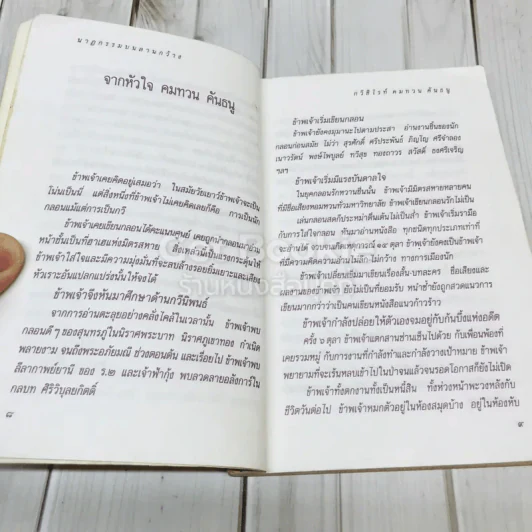 นาฏกรรมบนลานกว้าง
จากหัวใจ คมทวน คันธนู
ข้าพเจ้าเคยคิดอยู่เสมอว่า ในสมัยวัยเยาว์ข้าพเจ้าจะเป็น
โน่นเป็นนี่ แต่สิ่งหนึ่งที่ข้าพเจ้าไม่เคยคิดเลยก็คือ การเป็นนัก
กลอนแม้แต่การเป็นกวี
ข้าพเจ้าเคยเขียนกลอนได้คะแนนศูนย์ เคยถูกนำกลอนมาอ่าน
หน้าชั้นเป็นที่ฮาเฮแห่งมิตรสหาย สิ่งเหล่านี้เป็นแรงกระตุ้นให้
ข้าพเจ้าใส่ใจและมีความมุ่งมั่นที่จะลบล้างรอยยิ้มเยาะและเสียง
หัวเราะอันแปลกแปร่งนั้นให้จงได้
ข้าพเจ้าจึงหันมาศึกษาด้านกวีนิพนธ์
จากการอ่านตะลุยอย่างคลั่งไคล้ในเวลานั้น ข้าพเจ้าพบ
กลอนดี ๆ ของสุนทรภู่ในนิราศพระบาท นิราศภูเขาทอง กำเนิด
พลายงาม จนถึงพระอภัยมณี ช่วงตอนต้น และเรื่อยไป ข้าพเจ้าพบ
ลีลากาพย์ยานี ของ ร.๒ และเจ้าฟ้ากุ้ง พบลวดลายอลังการ์ใน
กลบท ศิริวิบุลยกิตติ์
๘
กวีสีไวท์ คมทวน คันธนู
ข้าพเจ้าเริ่มเขียนกลอน
ข้าพเจ้ายังคงมุมานะไปตามประสา อ่านงานชื่นของนัก
กลอนก่อนสมัย ไม่ว่า สุรศักดิ์ ศรีประพันธ์ ภิญโญ ศรีจำลอง
เนาวรัตน์ พงษ์ไพบูลย์ ทวีสุข ทองถาวร สวัสดิ์ ธงศรีเจริญ
ฯลฯ
ข้าพเจ้าเริ่มมีแรงบันดาลใจ
ในยุคกลอนรักหวานชื่นนั้น ข้าพเจ้ามีมิตรสหายหลายคน
ที่มีชื่อเสียงหอมหวนทั่วมหาวิทยาลัย ข้าพเจ้าเขียนกลอนรักไม่เป็น
เล่นกลอนสดก็ประหม่าตื่นเต้นไม่เป็นส่ำ ข้าพเจ้าเริ่มรามือ
กับการใส่ใจกลอน หันมาอ่านหนังสือ ทุกชนิดทุกประเภทเท่าที่
จะอ่านได้ จวบจนเกิดเหตุการณ์ ๑๔ ตุลา ข้าพเจ้ายังคงเป็นข้าพเจ้า
ที่มีความคิดความอ่านไม่ลึก-ไม่กว้าง ทางการเมืองนัก
ข้าพเจ้าเปลี่ยนเข็มมาเขียนเรื่องสั้น-บทละคร ชื่อเสียงและ
ผลงานของข้าพเจ้า ยังไม่เป็นที่ยอมรับ หนำซ้ำยังถูกสวดแนวการ
เขียนมากกว่าว่าเป็นคนเขียนหนังสือแนวก้าวร้าว
ข้าพเจ้ากำลังปล่อยให้ตัวเองจมอยู่กับก้นบึ้งแห่งอดีต
ครั้ง ๖ ตุลา ข้าพเจ้าแตกลานซ่านเซ็นไปด้วย กับเพื่อนพ้องที่
เคยรวมหมู่ กับการงานที่กำลังทำและกำลังวางเป้าหมาย ข้าพเจ้า
พยายามที่จะเร้นหลบเข้าไปในป่าจนแล้วจนรอดโอกาสก็ยังไม่เปิด
ข้าพเจ้าทั้งตกงานทั้งเป็นหนี้สิน ทั้งห่วงหน้าพะวงหลังกับ
ชีวิตวันต่อไป ข้าพเจ้าหมกตัวอยู่ในห้องสมุดบ้าง อยู่ในห้องหับ
๙